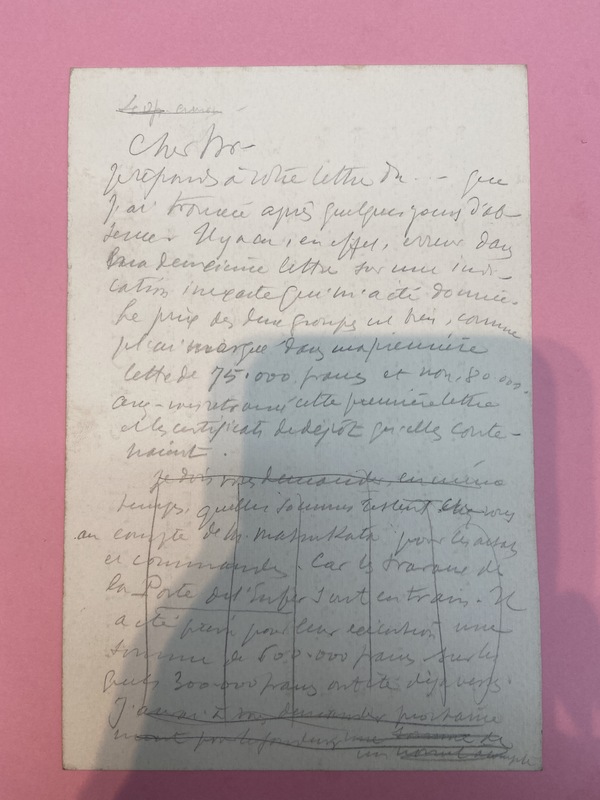 Cher Mr
Je réponds à votre lettre du ... que
j'ai trouvée après quelques jours d'ab-
sence. Il y a eu, en effet, erreur dans
ma deuxième lettre sur une indi-
cation inexacte qui m'a été donnée.
Le prix des deux groupes est bien, comme
je l'ai marqué dans ma première
lettre de 75.000 francs et non 80.000.
avez-vous retrouvé cette première lettre
et les certificats de dépôt qu'elle conte-
naient.
Je dois vous demander en même
temps, quelles sommes restent chez vous
au compte de M. Matsukata pour les achats
et commandes. Car les travaux de
la Porte de l'Enfer sont en train. Il
a été prévu pour leur exécution une
somme de 600.000 francs sur les
quels 300.000 francs ont été déjà versés.
J'aurai à vous demander prochaine
ment pour le fondeur une somme de
un